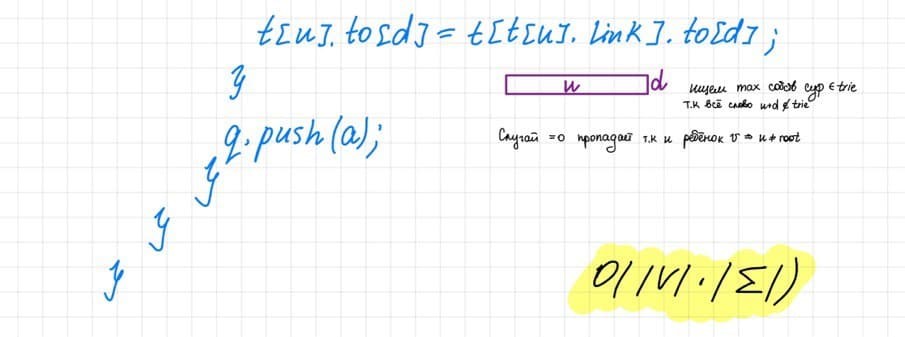 t[u].to[d] = t[t[u].link].to[d];
}
u d
ищем max собств суф ∈ trie
т.к всё слово u+d ∉ trie
q.push(a);
Случай =0 пропадает т.к u ребёнок v ⇒ u ≠ root
}
}
}
O(|V|·|Σ|)